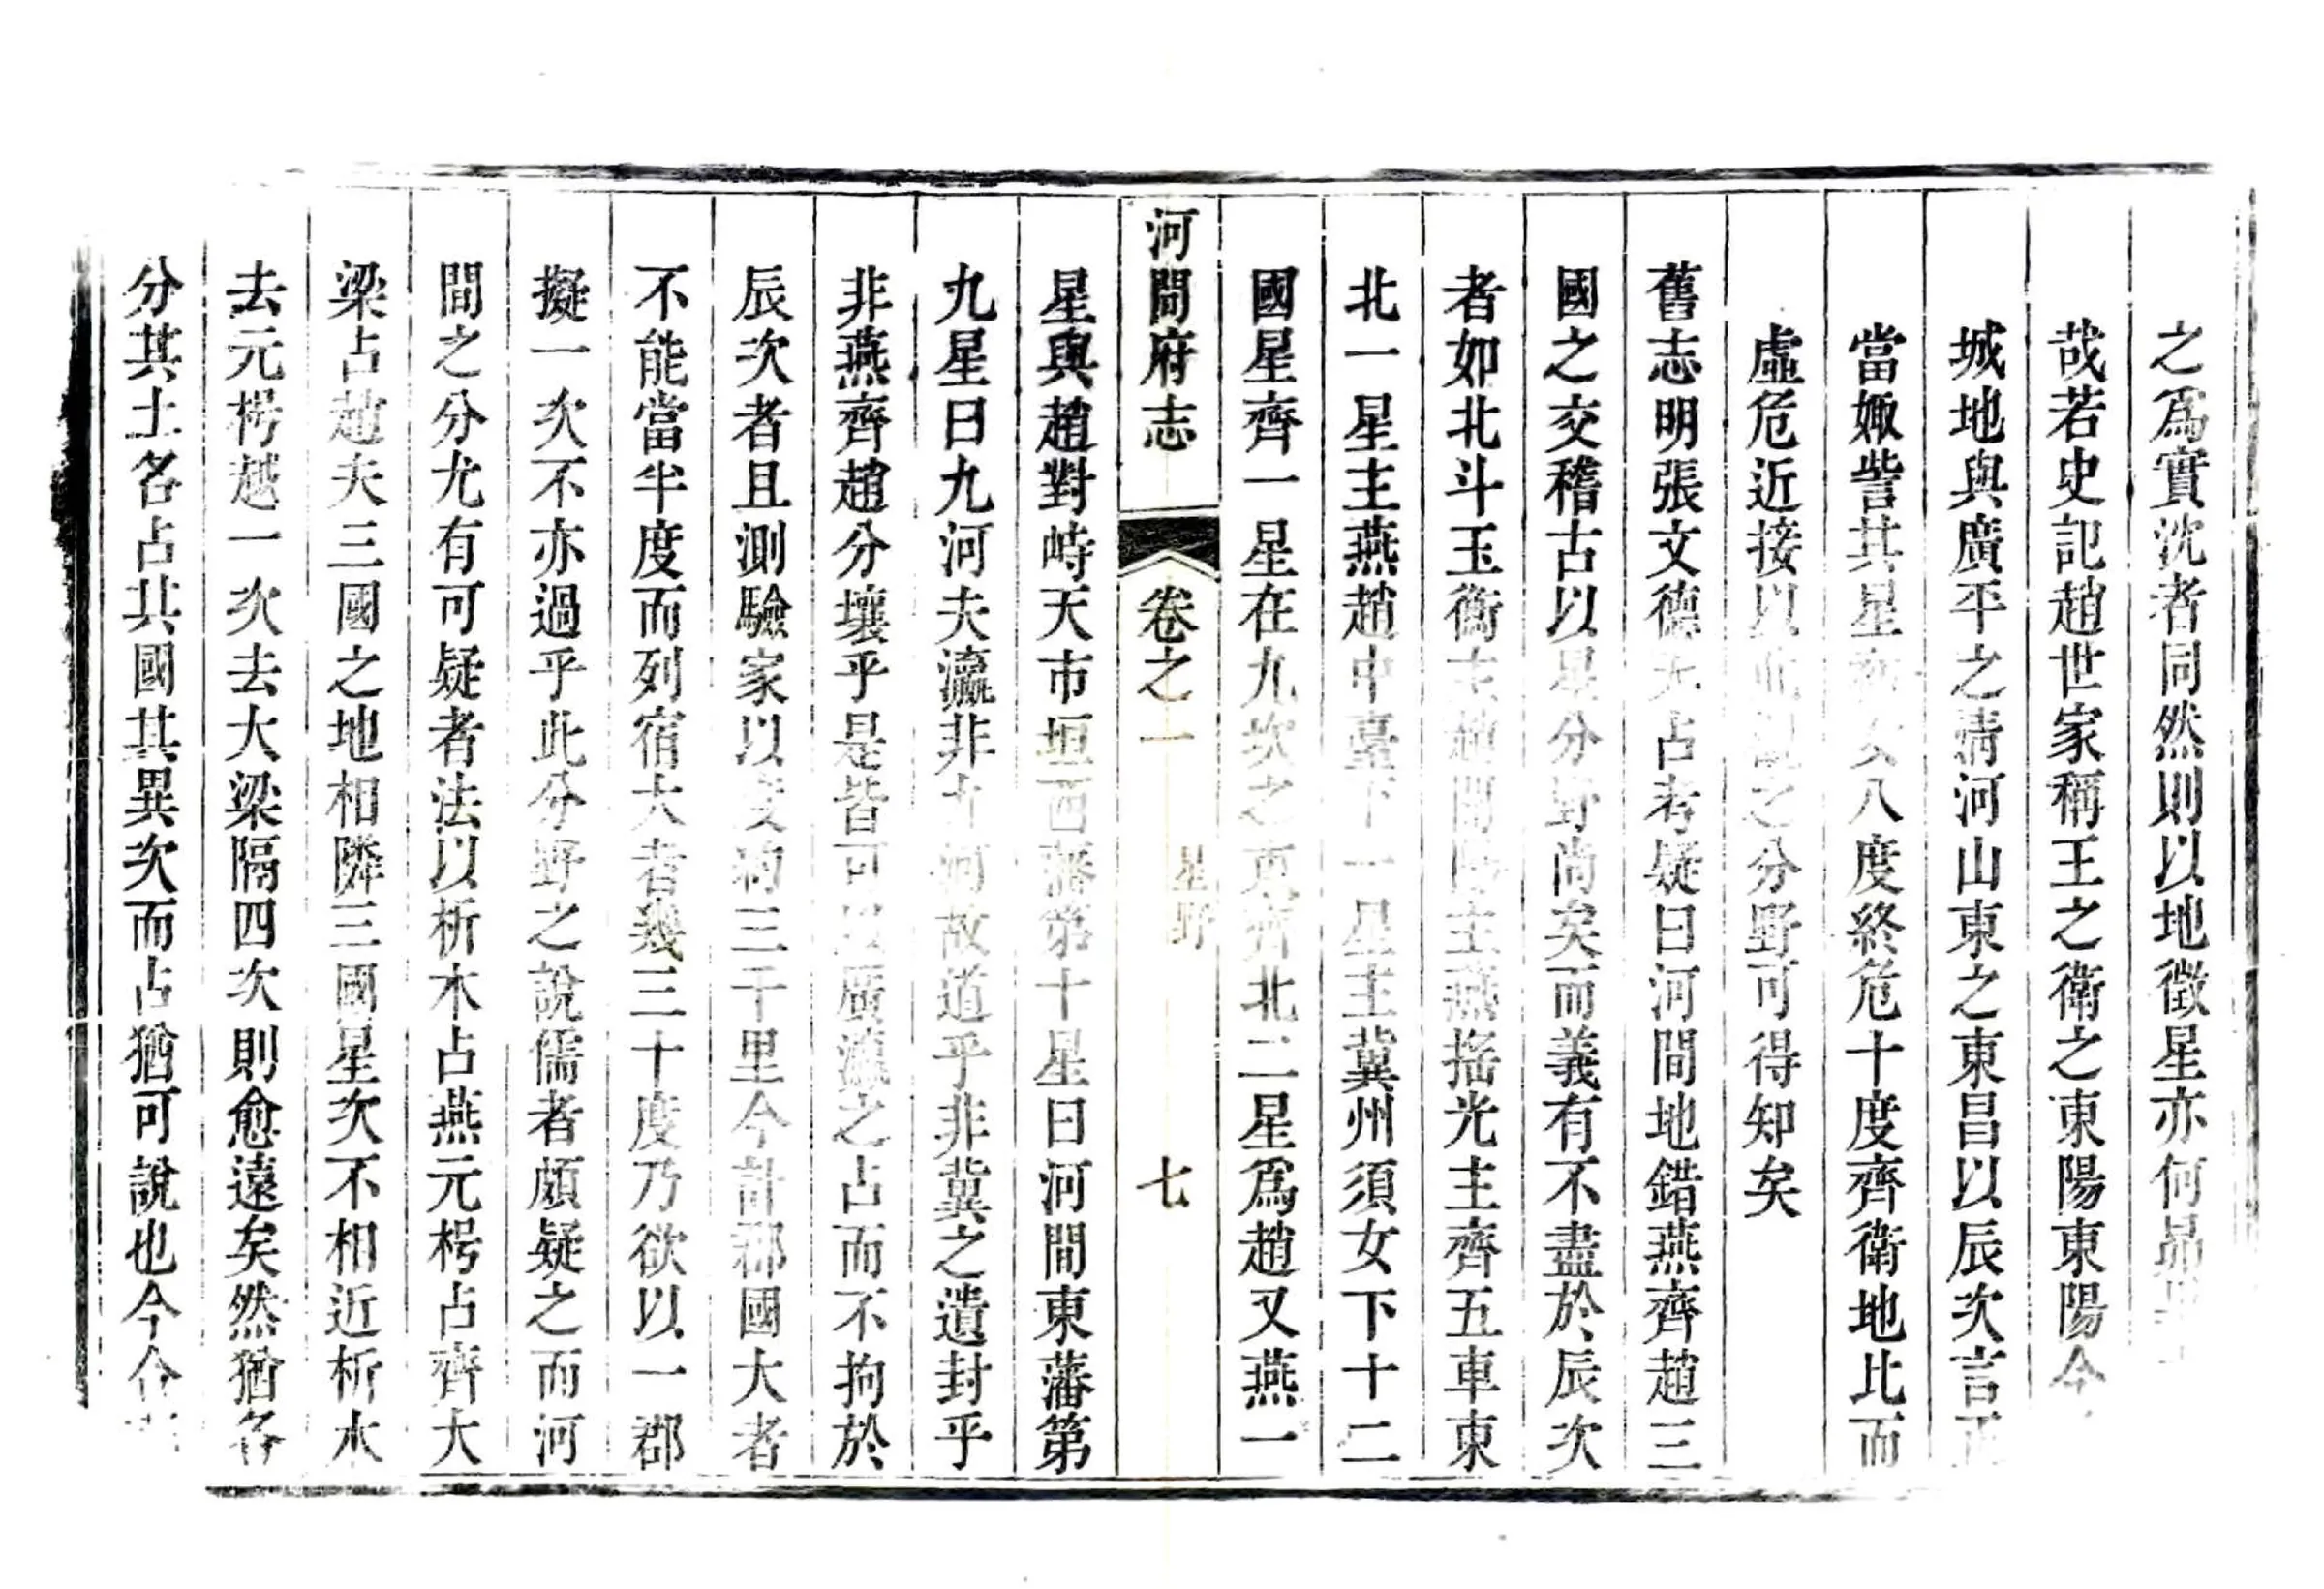 之爲實沈者同然則以地徵星亦何昴
哉若史記趙世家稱王之衛之東陽東陽今
城地與廣平之清河山東之東昌以辰次言正
當娵訾其星 八度終危十度齊衛地比而
虛危近接以 之分野可得知矣
舊志明張文德天占考疑曰河間地錯燕齊趙三
國之交稽古以星分野尚矣而義有不盡於辰次
者如北斗玉衡主趙開陽主燕搖光主齊五車東
北一星主燕趙中臺下一星主冀州須女下十二
國星齊一星在九坎之東齊北二星爲趙又燕一
星與趙對峙天市垣西藩第十星曰河間東藩第
九星曰九河夫瀛非九河故道乎非冀之遺封乎
非燕齊趙分壤乎是皆可以廣瀛之占而不拘於
辰次者且測驗家以度約三千里今計郡國大者
不能當半度而列宿大者幾三十度乃欲以一郡
擬一次不亦過乎此分野之說儒者頗疑之而河
間之分尤有可疑者法以析木占燕元枵占齊大
梁占趙夫三國之地相隣三國星次不相近析木
去元枵越一次去大梁隔四次則愈遠矣然猶各
分其土各占其國其異次而占猶可說也今合
河間府志 卷之一 星野 七